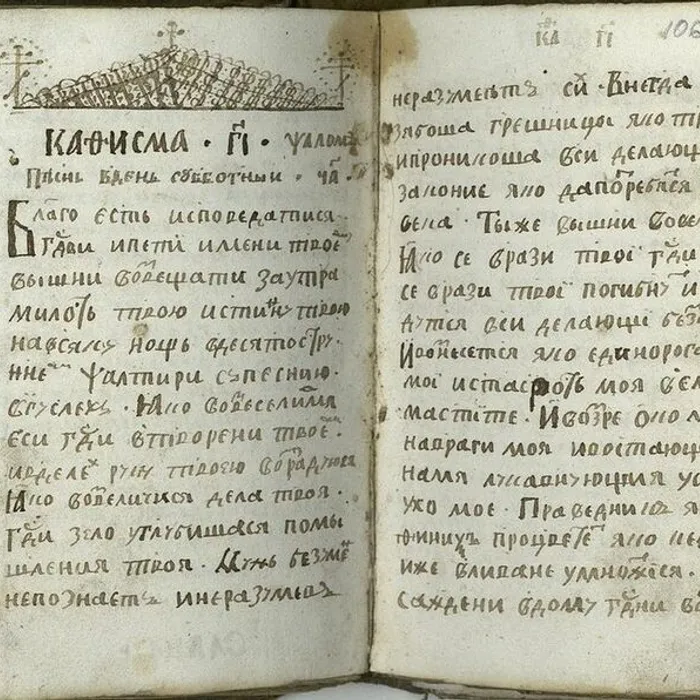 КАѲИСМА · ГІ · ѰАЛОМ
Пѣснь вдень субботныи · ча ·
Благо есть исповедатися
Гдви ипети имени твое
вышни возвещати заутра
милоть твою истинꙋ твою
навсякꙋ нощь вдесятостру
нне Ѱалтири съпеснию
вгꙋслехъ · Яко возвеселимя
еси гди втворени твое ·
ивделе рꙋкꙋ твоею возрадꙋюся
Яко возвеличися дела твоя ·
гди зело углубишася помы
шления твоя · Мꙋжъ безꙋме
непознаетъ инеразꙋмевъ
КА ГІ 106
неразꙋметъ сй · Внегда
зябоша грешницы яко тр
ипроникоша вси делающ
законие яко дапотребятся
века · Тыже вышни вове
Яко се врази твоі гди
се врази твоі погибнꙋ и
дутся вси делающі без
Ивознесется яко единорога
моі истарость моя вел
мастите · Ивозре око м
навраги моя ивостающ
намя лꙋкавнующия ус
ухо мое · Праведникъ я
финихъ процвете яко ке
иже вливане умножися ·
Саждени вдомꙋ гдни во